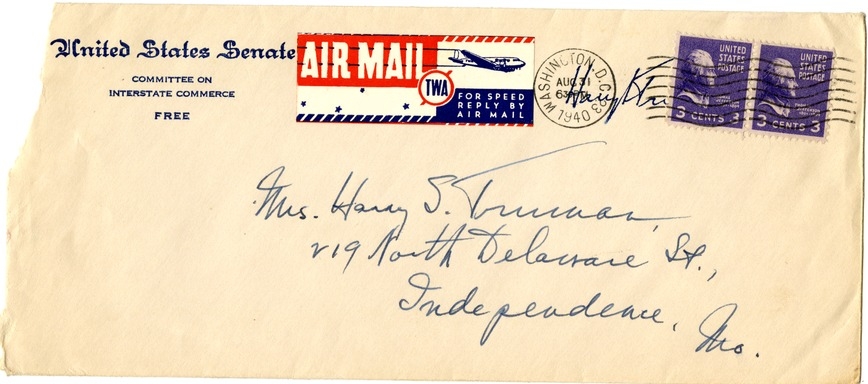 United States Senate
COMMITTEE ON
INTERSTATE COMMERCE
FREE
AIR MAIL
TWA
FOR SPEED
REPLY BY
AIR MAIL
WASHINGTON, D.C.
AUG 31
1940
UNITED
STATES
POSTAGE
3 CENTS 3
UNITED
STATES
POSTAGE
3 CENTS 3
Mrs. Harry S. Truman,
219 North Delaware St.,
Independence, Mo.